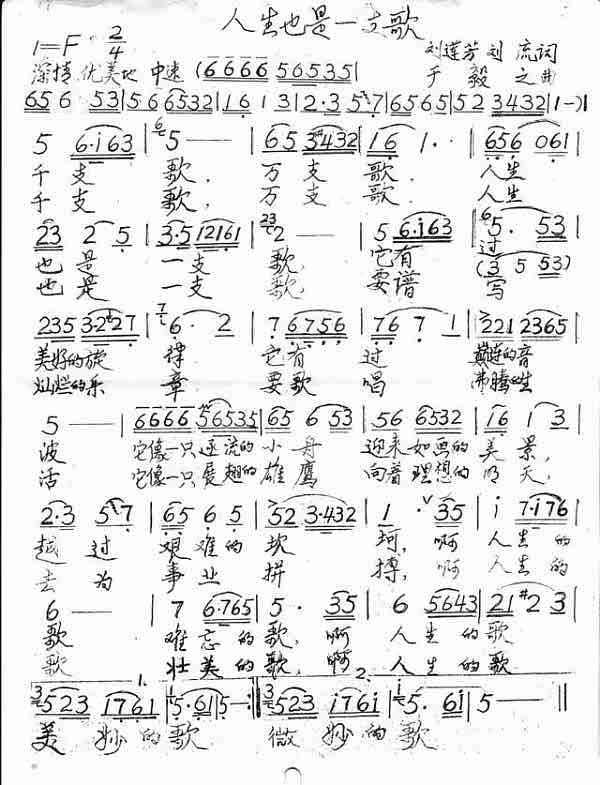 人生也是一支歌
1=F 2/4
刘莲芳 刘 流词
深情 优美地 中速 (6666 56535|
于 毅 之曲
65 6 53|56 6532|16 1 3|2·3 5 7|6565|52 3432|1-)|
5 6·i63|5 —|65 3432|16 1·|656 061|
千支 歌, 万支 歌. 人生
千支 歌, 万支 歌. 人生
23 2 5|3·5 12161|2 —|5 6·i63|5· 53|
也是 一支 歌, 它有 过
(3 5 53)
也是 一支 歌, 要谱 写
235 3·2327|6· 2|7 6756|76 7 1|221 2365|
美好的旋 律 它有 过 颠连的音
灿烂的乐 章 要歌 唱 沸腾的生
5 —|6666 56535|65 6 53|56 6532|16 1 3|
波 它像一只逐流的小舟 迎来如画的美景,
活 它像一只展翅的雄鹰 向着理想的明天,
2·3 5 7|65 6 5|52 3·432|1 · 35|i 7·i76|
越过 艰难的坎 坷, 啊 人生的
去为 事业 拼 搏, 啊 人生的
6 —|7 6·765|5· 35|6 5643|21 #2 3|
歌 难忘的歌, 啊 人生的歌
歌 壮美的歌, 啊 人生的歌
1. 2.
523 1761|5·61|5 :|523 i76i|5. 6i|5 —‖
美 妙的歌 微妙的歌